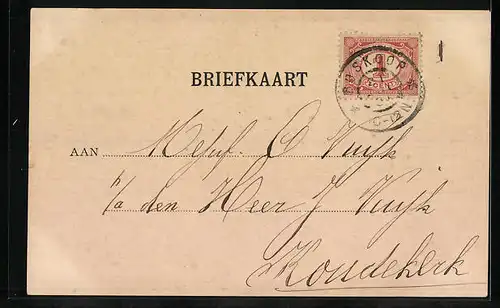 BOSKOOP
1
BRIEFKAART
AAN Mejuf. C Vuijk
p/a den Heer J Vuijk
Koudekerk